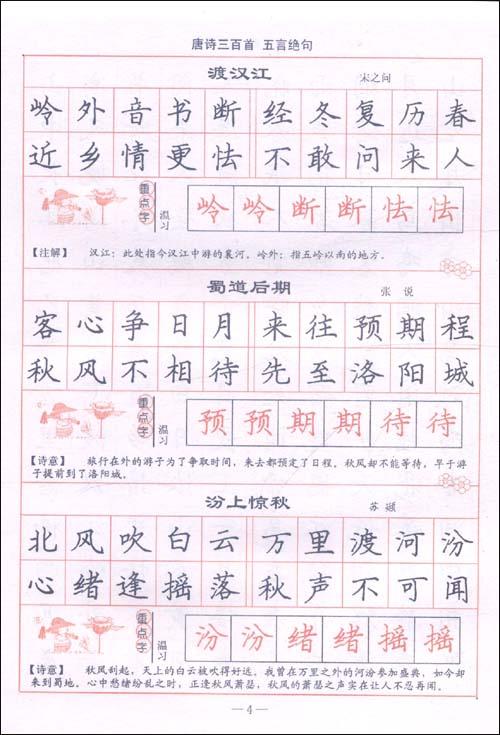 唐诗三百首 五言绝句
渡汉江 宋之问
岭外音书断 经冬复历春
近乡情更怯 不敢问来人
重点字 温习 岭岭断断怯怯
【注解】 汉江：此处指今汉江中游的襄河。岭外：指五岭以南的地方。
蜀道后期 张 说
客心争日月 来往预期程
秋风不相待 先至洛阳城
重点字 温习 预预期期待待
【诗意】 旅行在外的游子为了争取时间，来去都预定了日程。秋风却不能等待，早于游
子提前到了洛阳城。
汾上惊秋 苏 颋
北风吹白云 万里渡河汾
心绪逢摇落 秋声不可闻
重点字 温习 汾汾绪绪摇摇
【诗意】 秋风刮起，天上的白云被吹得好远。我曾在万里之外的河汾参加盛典，如今却
来到蜀地。心中愁绪纷乱之时，正逢秋风萧瑟，秋风的萧瑟之声实在让人不忍再闻。
—4—